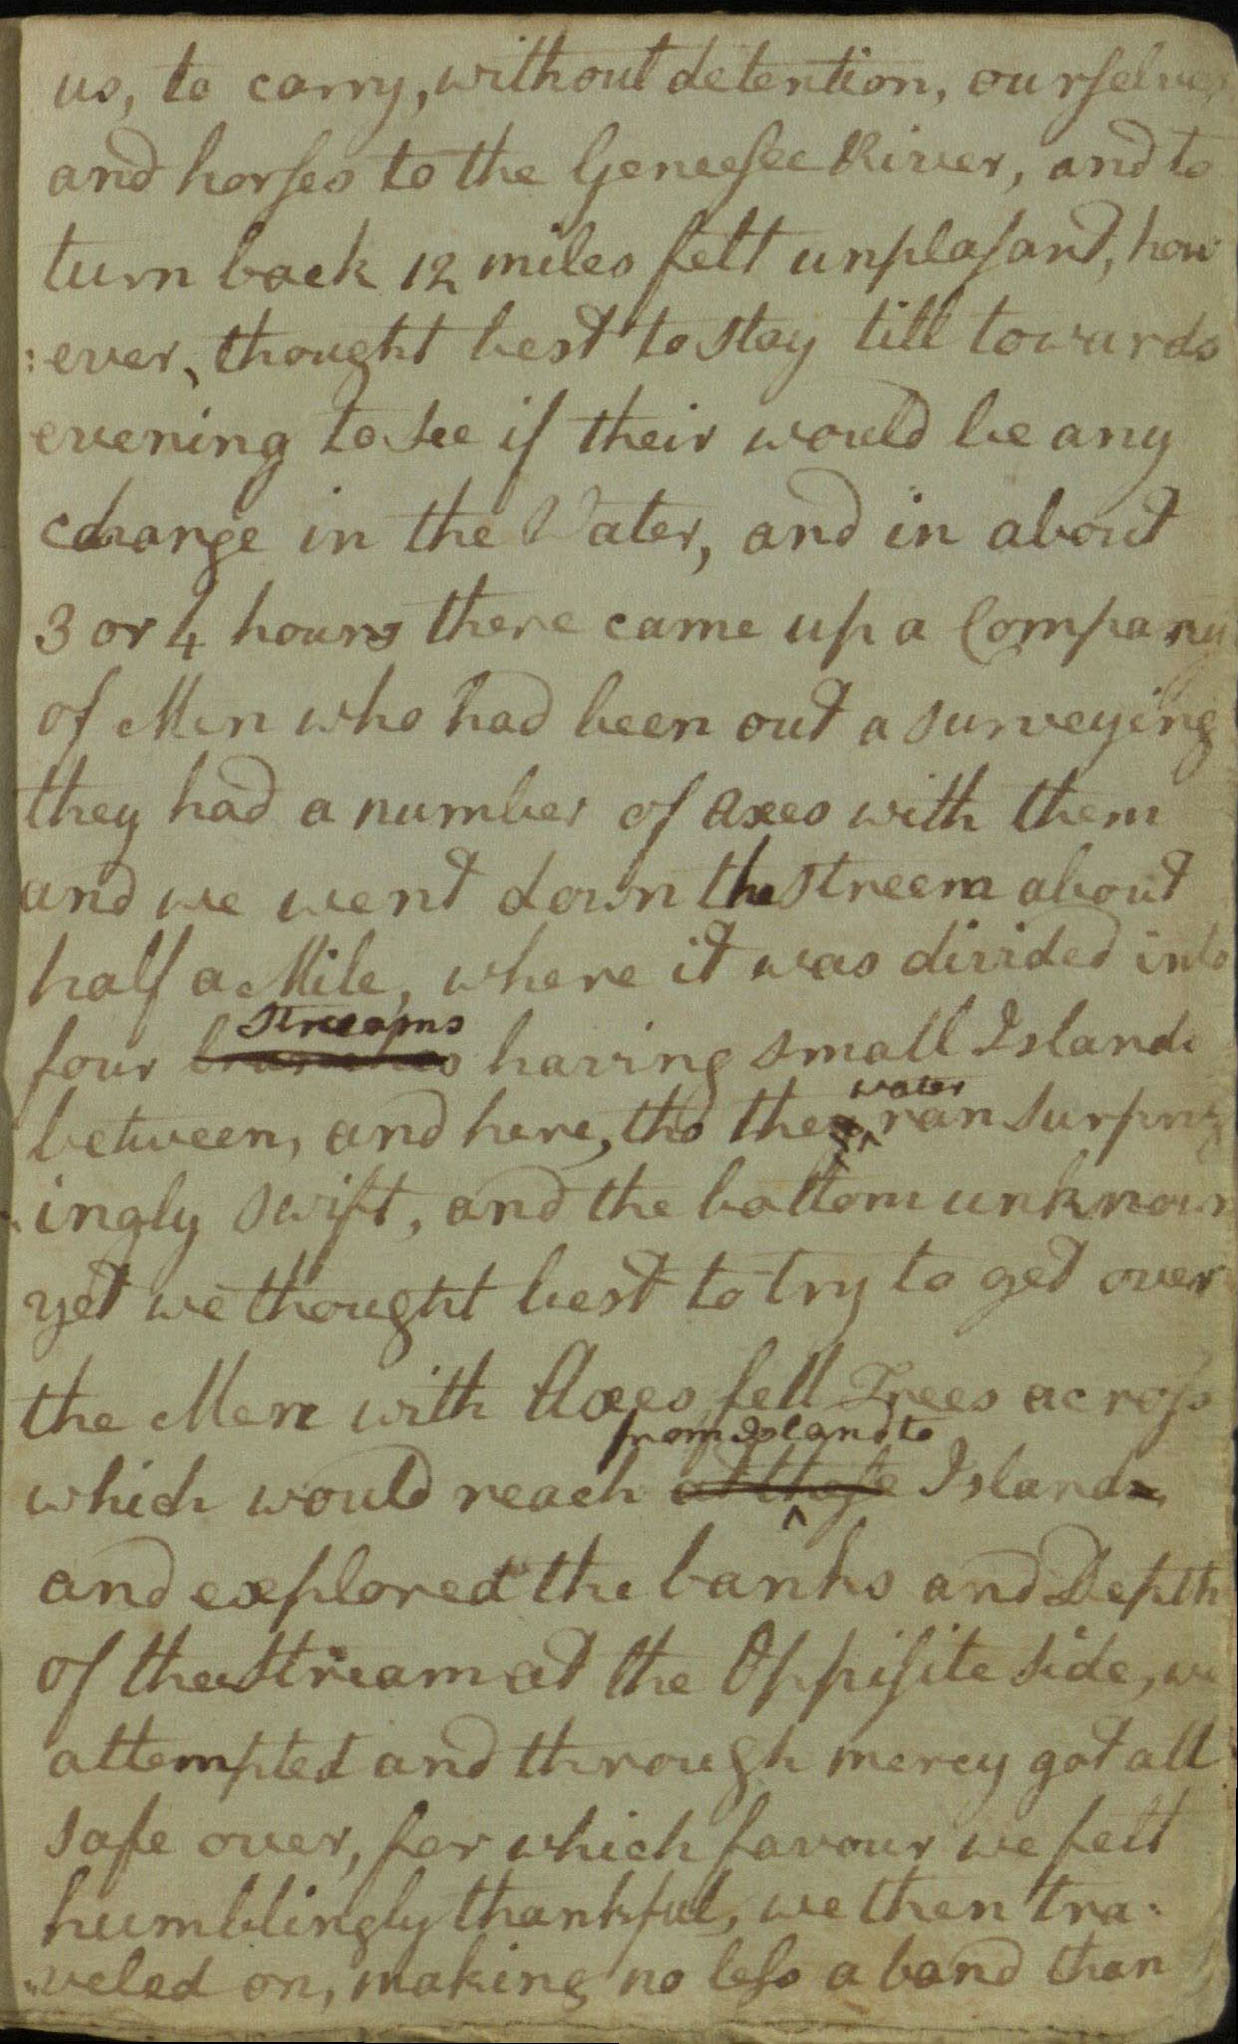 us, to carry, without detention, ourselves
and horses to the Genesee River, and to
turn back 12 miles felt unplasant, how
:ever, thought best to stay till towards
evening to see if their would be any
change in the Water, and in about
3 or 4 hours there came up a Company
of Men who had been out a surveying
they had a number of axes with them
and we went down the streem about
half a Mile, where it was divided into
streams
four branches having small Islands
water
between, and here, tho the ran surpriz
ingly swift, and the bottom unknown
yet we thought best to try to get over
the Men with Axes fell Trees across
from Island to
which would reach at those Island
and explored the banks and Depth
of the stream at the Oppisite side, we
attempted and through mercy got all
safe over, for which favour we felt
humblingly thankful, we then tra:
veled on, making no less a band than